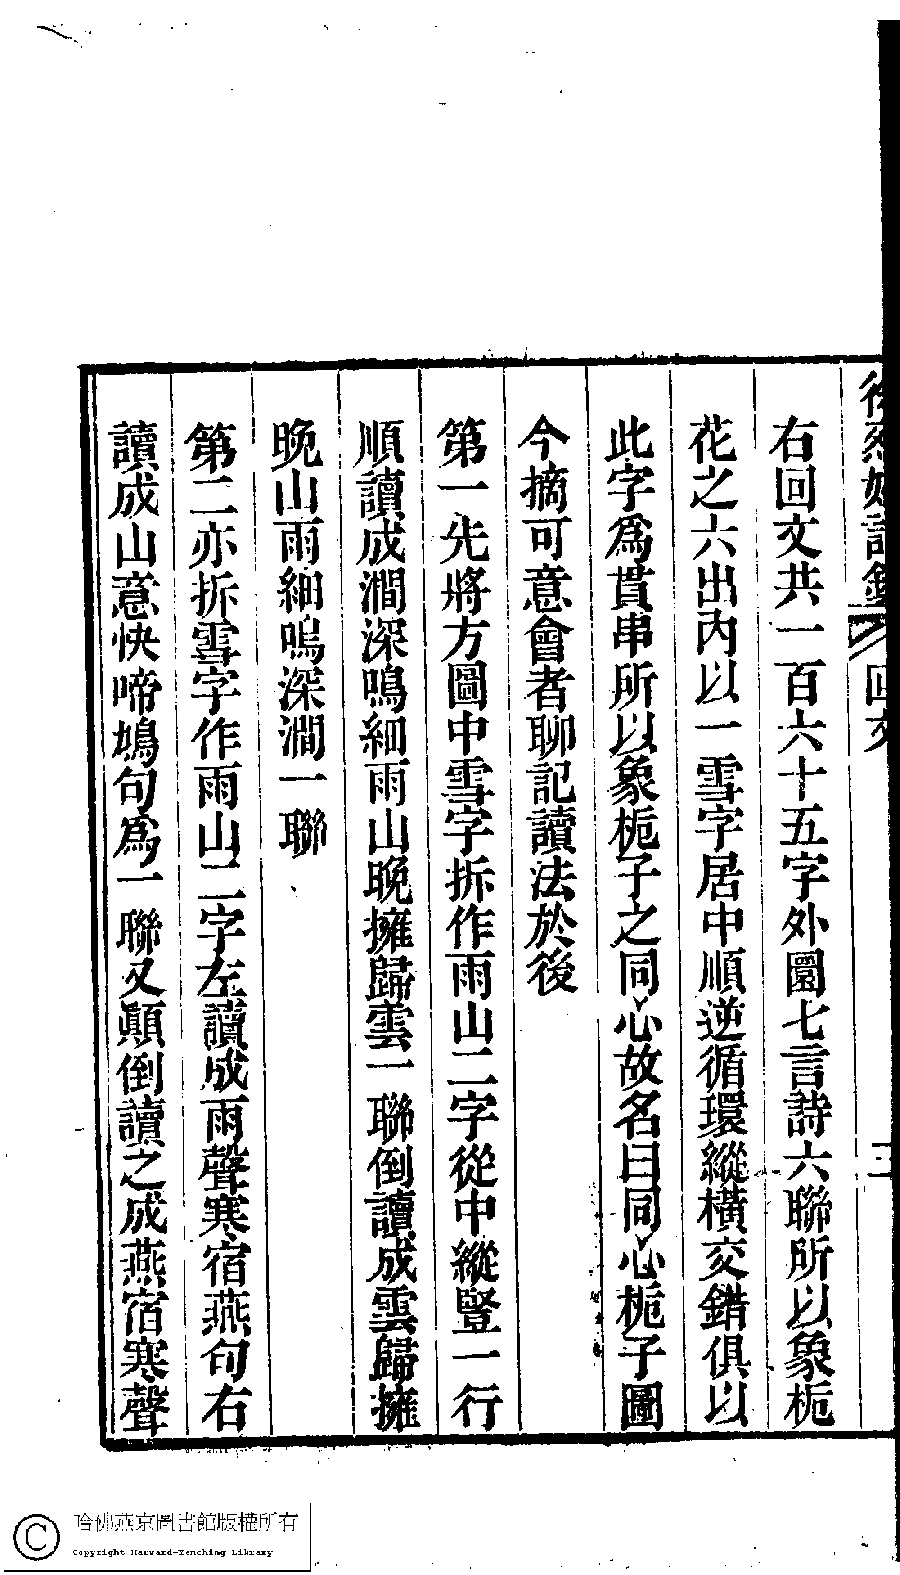 右回文共一百六十五字外圜七言詩六聯所以象栀
花之六出內以一雪字居中順逆循環縱橫交錯俱以
此字爲貫串所以象栀子之同心故名曰同心栀子圖
今摘可意會者聊記讀法於後
第一先將方圖中雪字拆作雨山二字從中縱豎一行
順讀成澗深鳴細雨山晚擁歸雲一聯倒讀成雲歸擁
晚山雨細鳴深澗一聯
第二亦拆雪字作雨山二字左讀成雨聲寒宿燕句右
讀成山意快啼鳩句爲一聯又顛倒讀之成燕宿寒聲
哈佛燕京圖書館版權所有
Copyright Harvard-Yenching Library